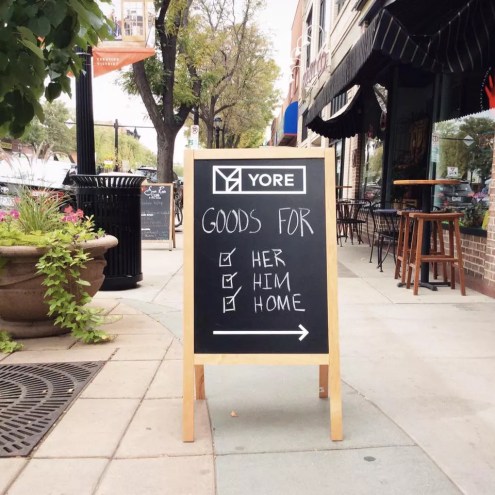 YORE
GOODS FOR
☑ HER
☑ HIM
☑ HOME
→